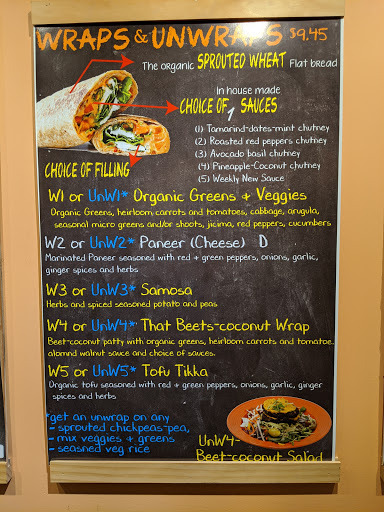 WRAPS & UNWRAPS $9.45
The organic SPROUTED WHEAT Flat bread
In house made
CHOICE OF 1 SAUCES
(1) Tamarind-dates-mint chutney
(2) Roasted red peppers chutney
(3) Avocado basil chutney
(4) Pineapple-Coconut chutney
(5) Weekly New Sauce
CHOICE OF FILLING
W1 or UnW1* Organic Greens + Veggies
Organic Greens, heirloom carrots and tomatoes, cabbage, arugula,
seasonal micro greens and/or shoots, jicima, red peppers, cucumbers
W2 or UnW2* Paneer (Cheese) D
Marinated Paneer seasoned with red + green peppers, onions, garlic,
ginger spices and herbs
W3 or UnW3* Samosa
Herbs and spiced seasoned potato and peas
W4 or UnW4* That Beets-coconut Wrap
Beet-coconut patty with organic greens, heirloom carrots and tomatoe..
alomnd walnut sauce and choice of sauces.
W5 or UnW5* Tofu Tikka
Organic tofu seasoned with red + green peppers, onions, garlic, ginger
spices and herbs
*get an unwrap on any
- sprouted chickpeas-pea,
- mix veggies + greens
- seasned veg rice
UnW4-
Beet-coconut Salad